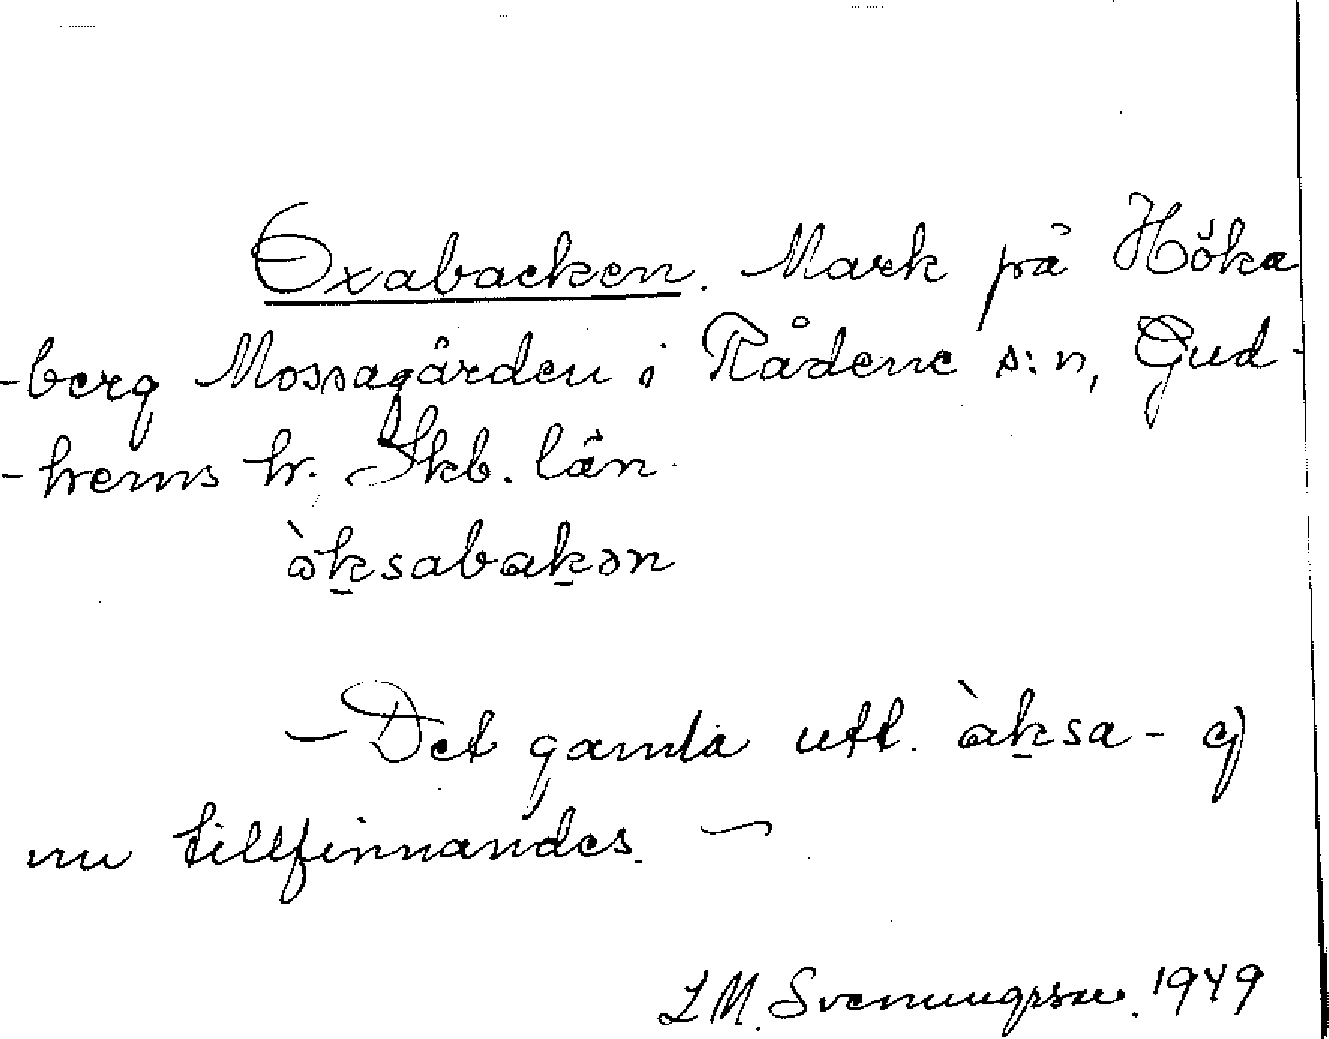 Oxabacken. Mark på Höka
-berg Mossagården i Rådene s:n, Gud-
-hems hr. Skb. län.
òksabakən
– Det gamla utt. àksa- ej
nu tillfinnandes. –
L M. Svenungsson. 1949